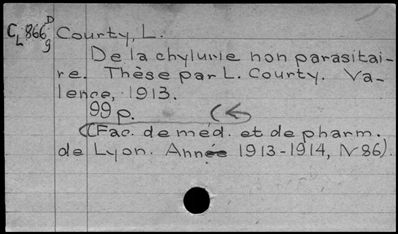 CL 866 D g Courty, L.
De la chylurie non parasitai-
re. Thèse par L. Courty. Va-
lence, 1913.
99 p.
(Fac. de méd. et de pharm.
de Lyon. Année 1913-1914, N 86).